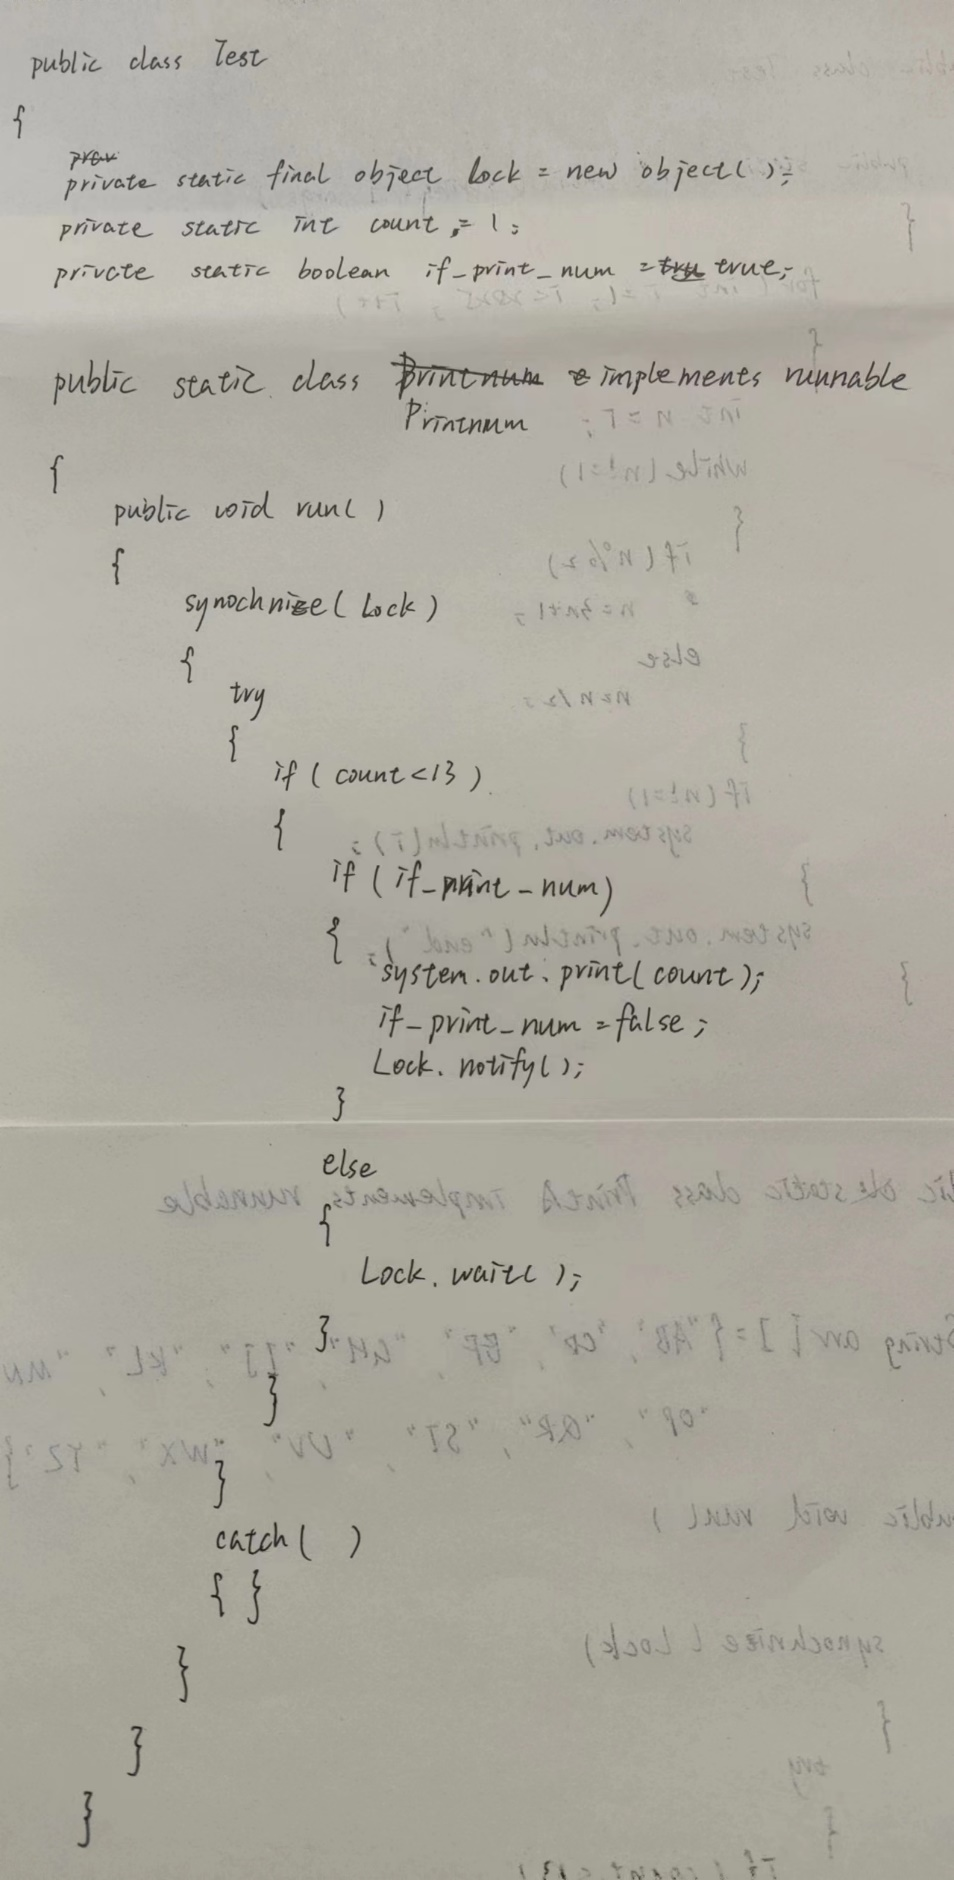 public class Test
{
private static final object Lock = new object();
private static int count = 1;
private static boolean if_print_num = true;
public static class Printnum implements runnable
{
public void run()
{
synochnize(Lock)
{
try
{
if(count<13)
{
if(if_print_num)
{
system.out.print(count);
if_print_num=false;
Lock.notify();
}
else
{
Lock.wait();
}
}
}
catch( )
{ }
}
}
}